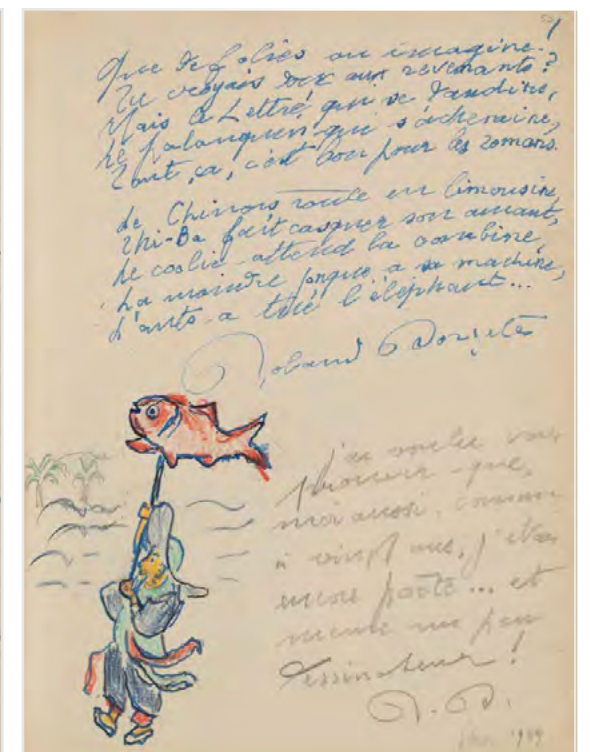 Que de folies on imagine!
Tu croyais donc aux revenants?
Mais le Lettré qui se dandine,
Le palanquin qui s'achemine,
Tout ça, c'est bon pour les romans.
Le Chinois roule en limousine,
Thi-Ba fait casquer son amant,
Le coolie attend la combine,
La moindre jonque a sa machine,
L'auto a tué l'éléphant...
Roland Dorgelès
j'ai voulu vous
prouver que,
moi aussi, comme
à vingt ans, j'étais
encore poète... et
même un peu
dessinateur!
R. D.